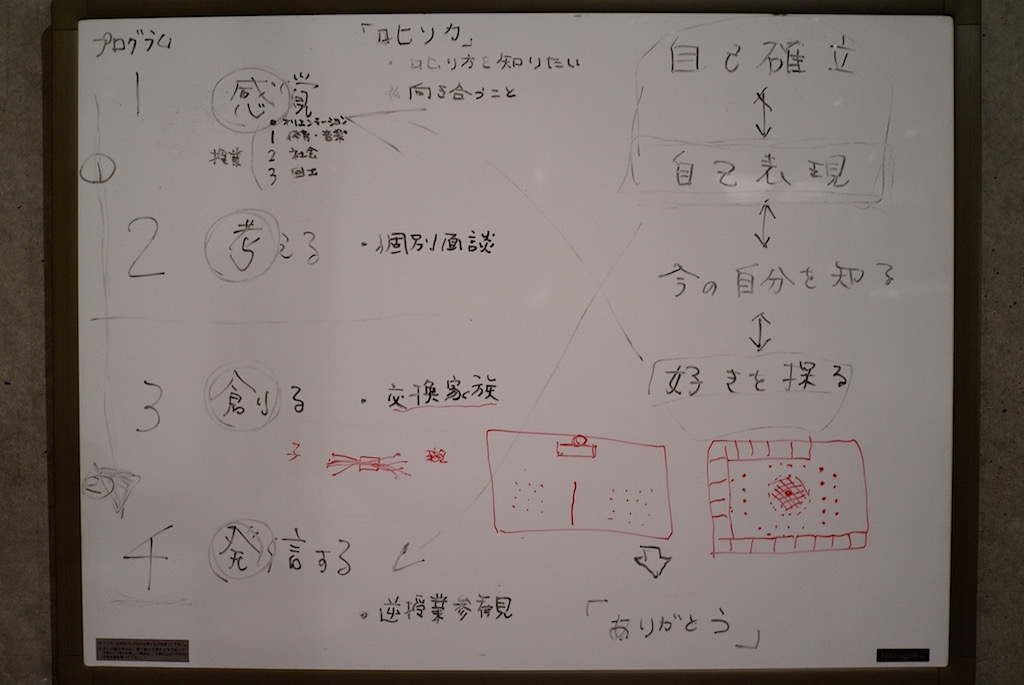 プログラム
1
感覚
オリエンテーション
授業
1 体育・音楽
2 社会
3 図工
①
2
考える
・個別面談
3
創る
・交換家族
子
親
②
4
発信する
・逆授業参観
・
を知りたい
向き合うこと
自己確立
自己表現
今の自分を知る
好きを探る
「ありがとう」